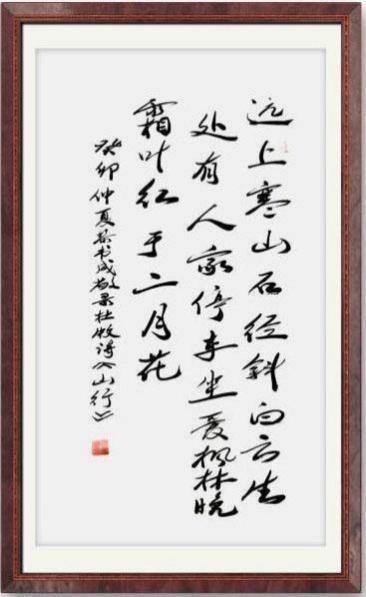 远上寒山石径斜白云生
处有人家停车坐爱枫林晚
霜叶红于二月花
癸卯仲夏书成敬录杜牧诗《山行》